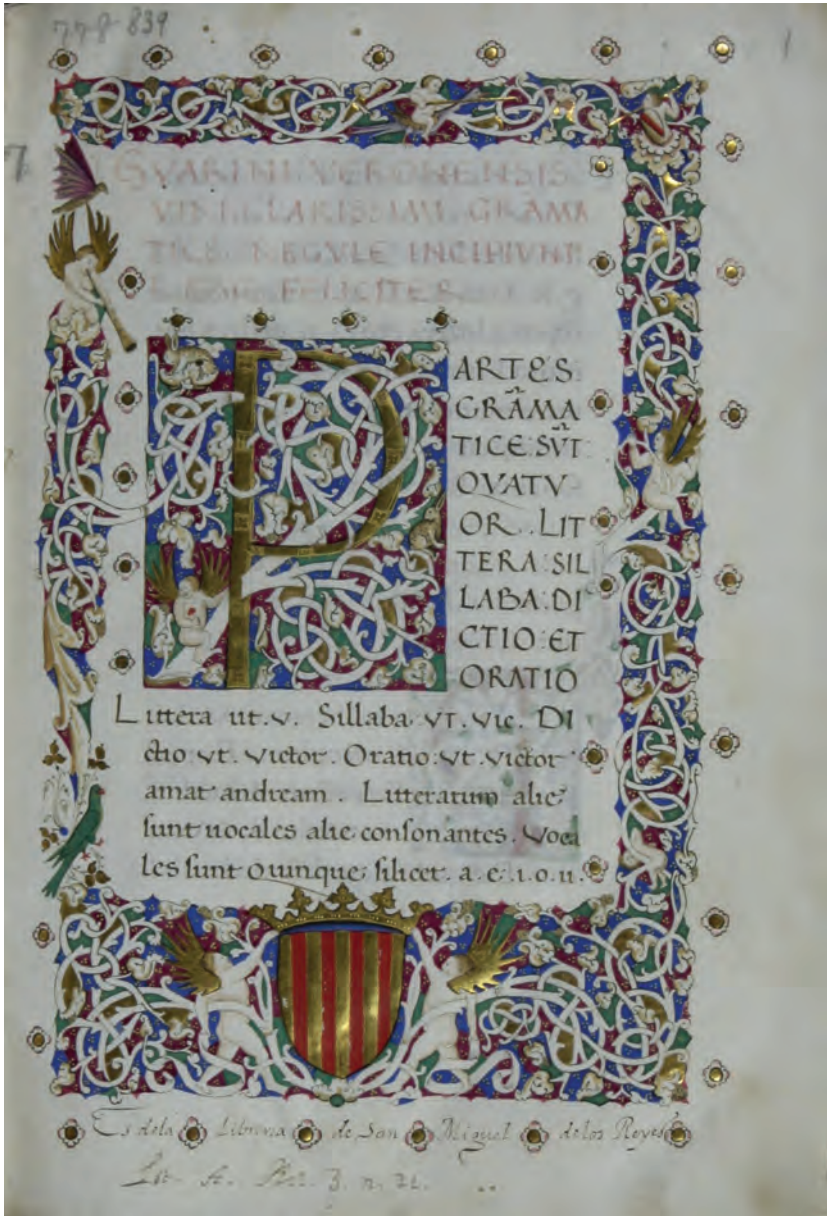 778-839
1
7
GVARINI VERONENSIS
VIRI CLARISSIMI GRAMA
TICES REGVLE INCIPIVNT
FELICITER
P
ARTES
GRAMA
TICE: SVT
QVATV
OR. LIT
TERA: SIL
LABA: DI
CTIO: ET
ORATIO
Littera ut. v. Sillaba: vt. vic. Di
ctio: vt. victor. Oratio: vt. victor
amat andream. Litterarum alie
sunt uocales alie consonantes. Voca
les sunt quinque: silicet. a. e. i. o. u.
Es dela Libreria de San Miguel de los Reyes